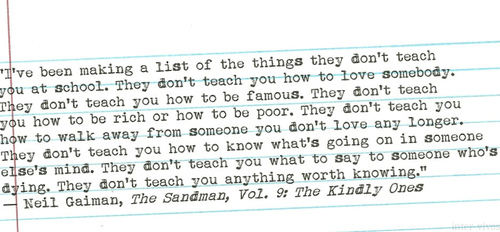 "I've been making a list of the things they don't teach
you at school. They don't teach you how to love somebody.
They don't teach you how to be famous. They don't teach
you how to be rich or how to be poor. They don't teach you
how to walk away from someone you don't love any longer.
They don't teach you how to know what's going on in someone
else's mind. They don't teach you what to say to someone who's
dying. They don't teach you anything worth knowing."
— Neil Gaiman, The Sandman, Vol. 9: The Kindly Ones